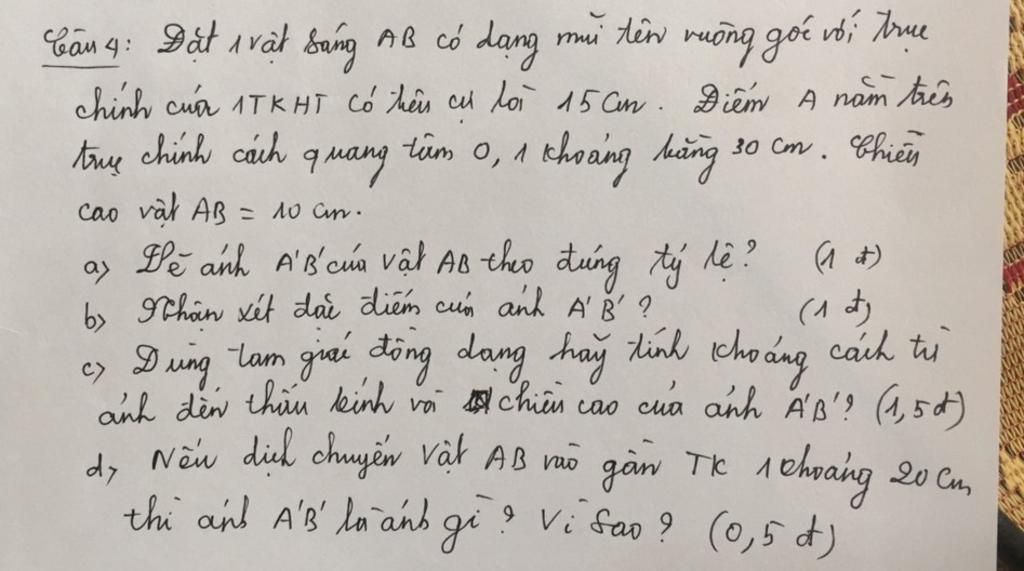 Câu 4: Đặt 1 vật sáng AB có dạng mũi tên vuông góc với trục
chính của 1TKHT có tiêu cự là 15 cm. Điểm A nằm trên
trục chính cách quang tâm O, 1 khoảng bằng 30 cm. Chiều
cao vật AB = 10 cm.
a) Vẽ ảnh A'B' của vật AB theo đúng tỷ lệ? (1 đ)
b) Nhận xét đặc điểm của ảnh A'B'? (1 đ)
c) Dùng tam giác đồng dạng hãy tính khoảng cách từ
ảnh đến thấu kính và chiều cao của ảnh A'B'? (1,5 đ)
d) Nếu dịch chuyển vật AB vào gần TK 1 khoảng 20 cm
thì ảnh A'B' là ảnh gì? Vì sao? (0,5 đ)